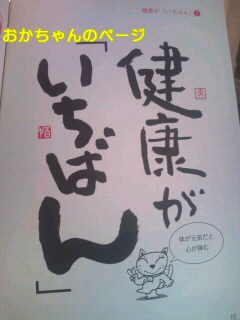 健康が「いちばん」
おかちゃんのページ
健康が
「いちばん」
体が元気だと
心が弾む